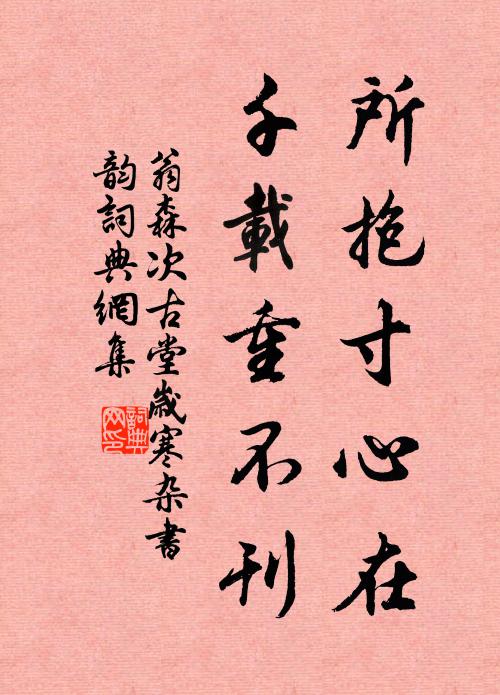 所抱寸心在
千載重不刊
翁森次古堂歲寒杂書
韵詞典網集
詞典
网印